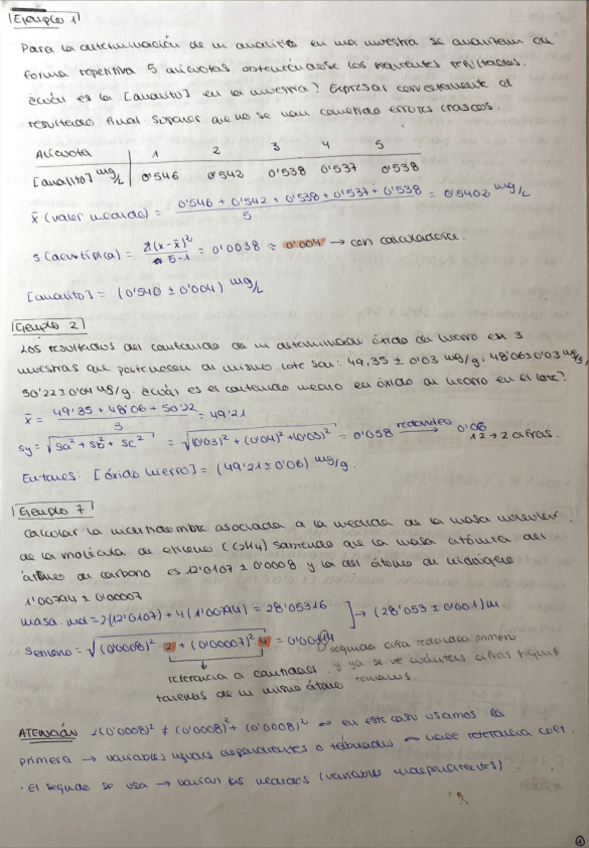 Ejemplo 1
Para la determinación de un analito en una muestra se analizan de
forma repetitiva 5 alícuotas obteniéndose los siguientes resultados.
¿cuál es la [analito] en la muestra? Expresar correctamente el
resultado final. Suponer que no se han cometido errores crasos.
Alícuota 1 2 3 4 5
[analito] mg/L 0'546 0'542 0'538 0'537 0'538
x̄ (valor medido) = 0'546 + 0'542 + 0'538 + 0'537 + 0'538 / 5 = 0'5402 mg/L
s (desv. típica) = Σ(x-x̄)² / 5-1 = 0'0038 ≈ 0'004 → con calculadora.
[analito] = (0'540 ± 0'004) mg/L
Ejemplo 2
Los resultados del contenido de un determinado óxido de hierro en 3
muestras que pertenecen al mismo lote son: 49,35 ± 0'03 mg/g, 48'06±0'03 mg/g,
50'22±0'04 mg/g. ¿cuál es el contenido medio en óxido de hierro en el lote?
x̄ = 49'35 + 48'06 + 50'22 / 3 = 49'21
sy = √sa² + sb² + sc² = √(0'03)² + (0'04)² + (0'03)² = 0'058 redondeo → 0'06
12 → 2 cifras.
Entonces: [óxido hierro] = (49'21 ± 0'06) mg/g.
Ejemplo 7
Calcular la incertidumbre asociada a la medida de la masa molecular
de la molécula de etileno (C2H4) sabiendo que la masa atómica del
átomo de carbono es 12'0107 ± 0'0008 y la del átomo de hidrógeno
1'00794 ± 0'00007
masa mol = 2(12'0107) + 4(1'00794) = 28'05316 ] → (28'053 ± 0'001) u.
s etileno = √(0'0008)² · 2 + (0'00007)² · 4 = 0'00114
segunda cifra redondea primero
referencia a cantidad y ya se ve cuántas cifras
tenemos de un mismo átomo tenemos
ATENCIÓN 2(0'0008)² ≠ (0'0008)² + (0'0008)² en este caso usamos la
primera → variables iguales dependientes o hace referencia
· El segundo se usa → varían las medidas (variables independientes)
1